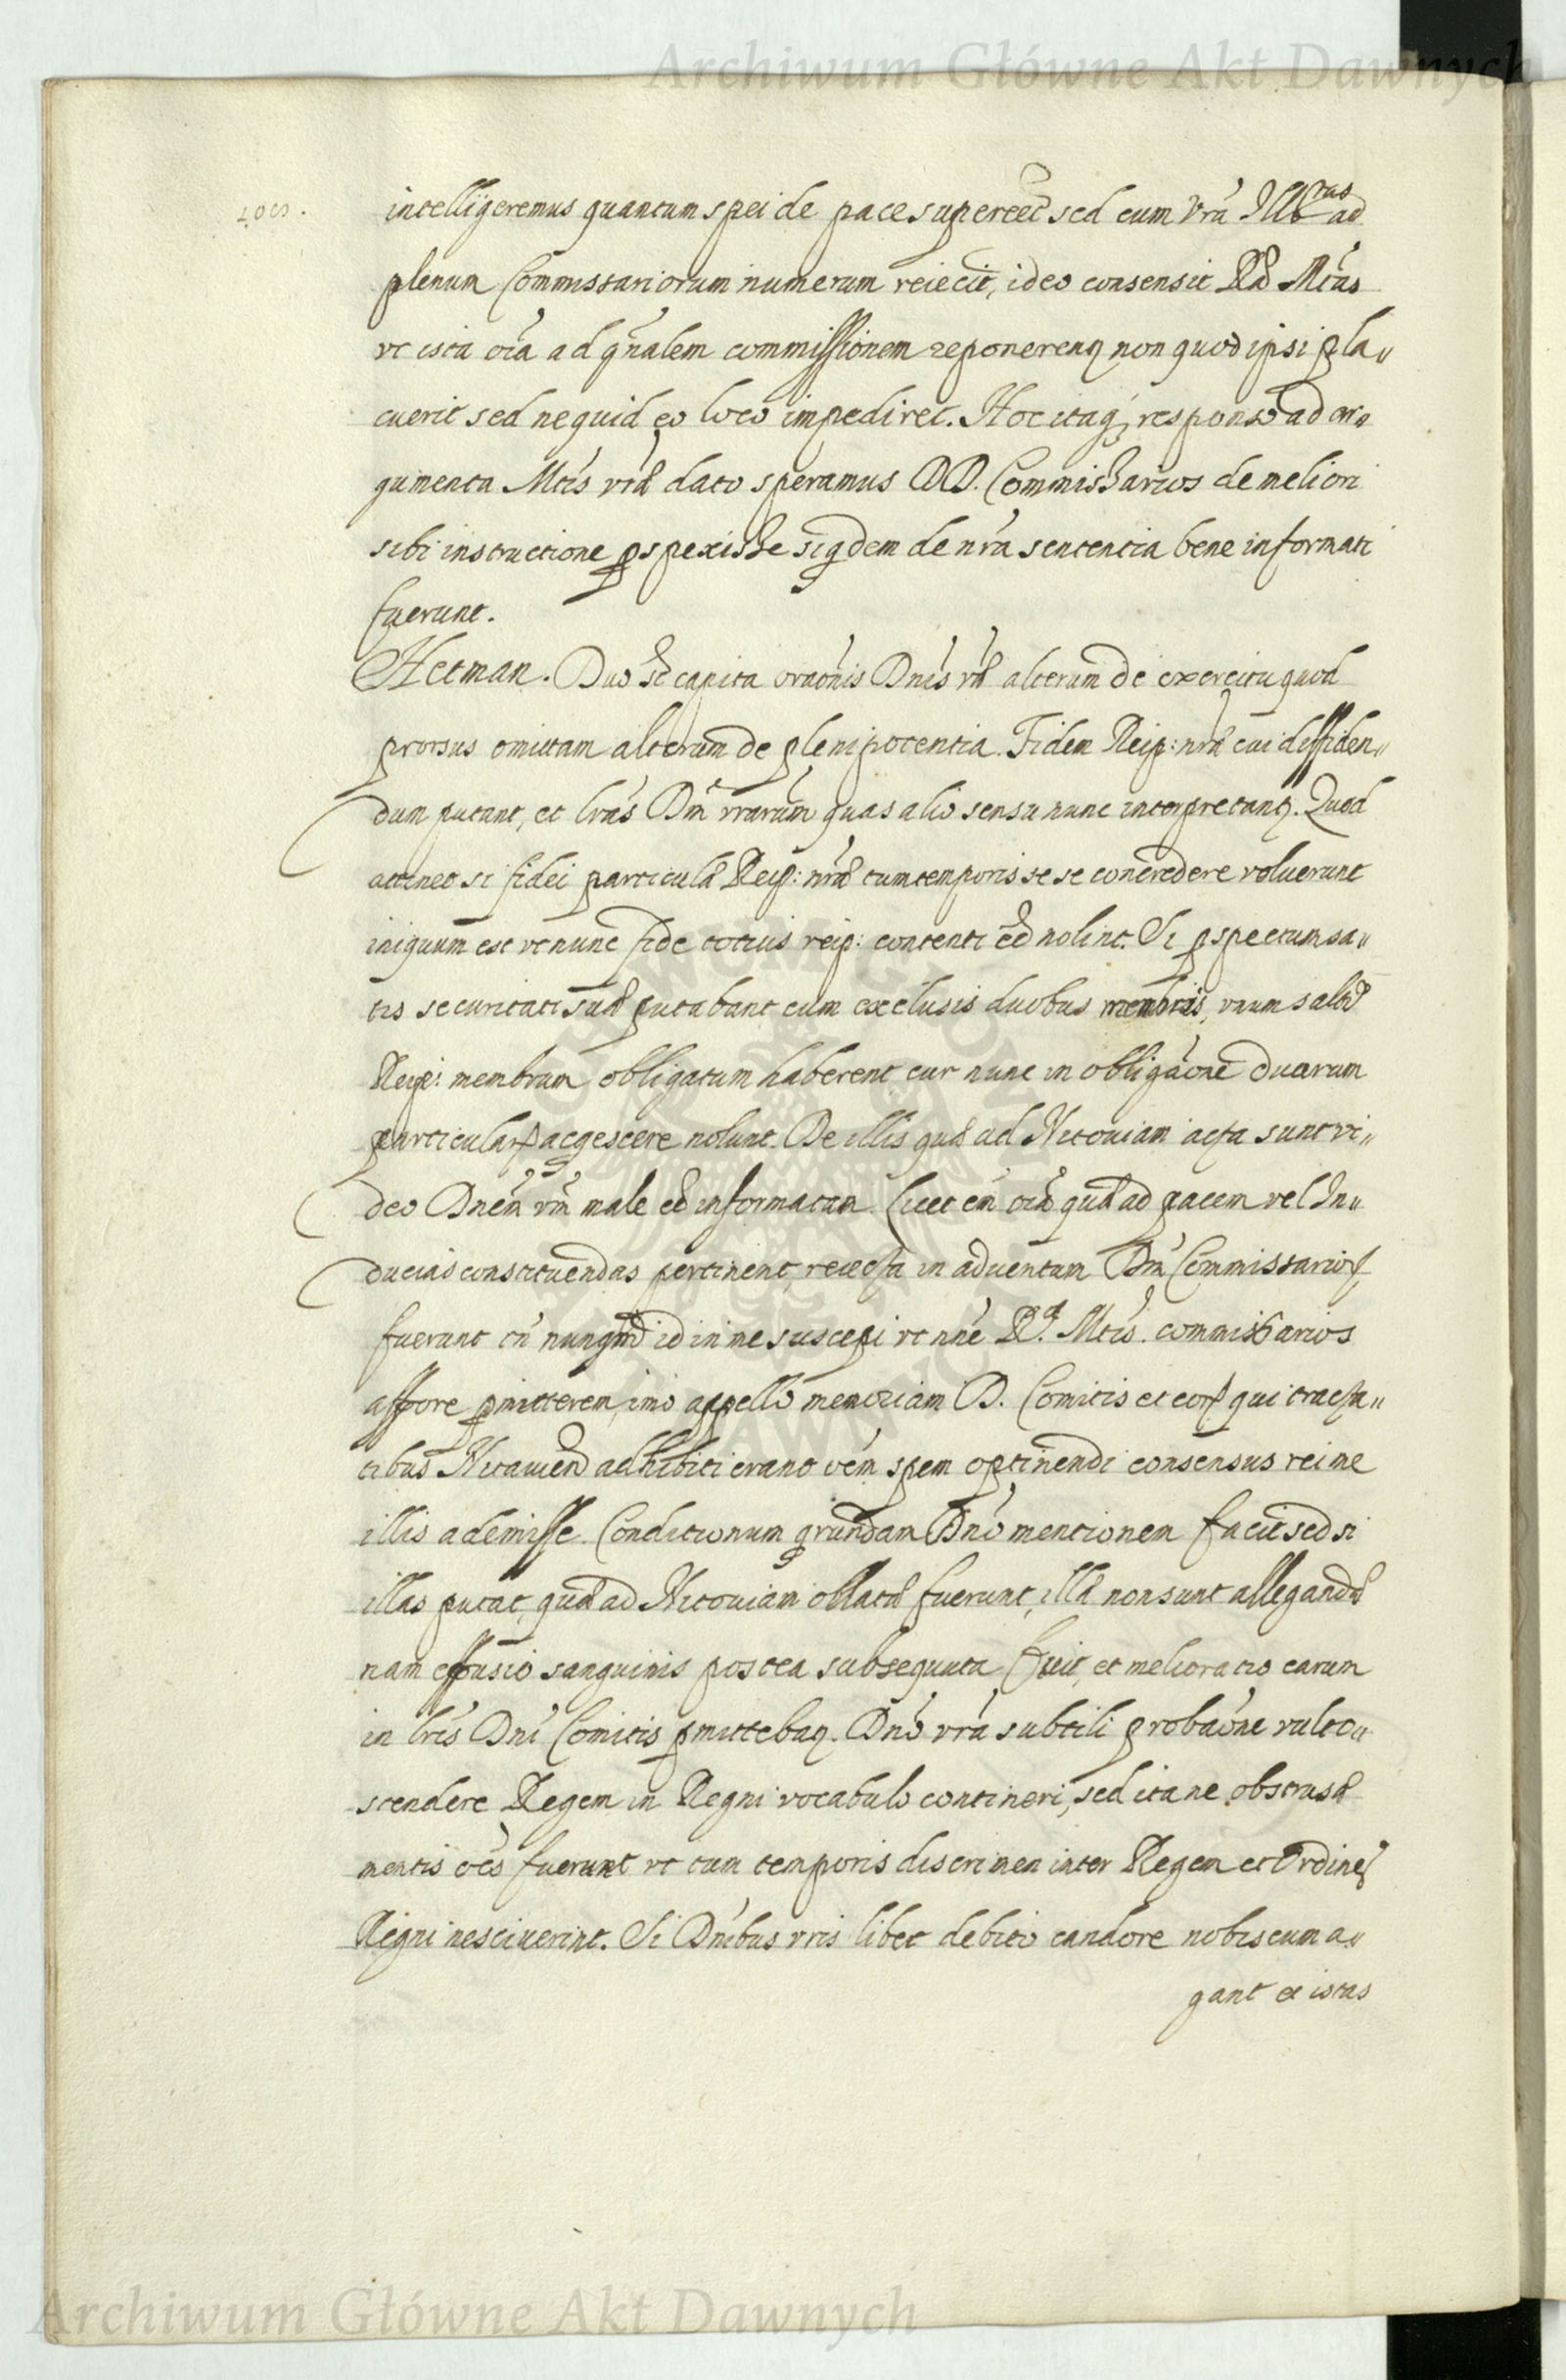 Archiwum Główne Akt Dawnych
intelligeremus quantum spei de pace superēet sed cum vrā Illtas ad
plenum Commissariorum numerum reiecit, ideo consensit Ræ Mtas
vt ista oīa ad gñalem commissionem reponerenq non quod ipsi pla„
cuerit sed ne quid eo loco impediret. Hoc itaq responso ad ar„
gumenta Mtis vræ dato speramus DD. Commissarios de meliori
sibi instructione pspexisse siqdem de nrā sententia bene informati
fuerunt.
Hetman. Duo st capita oraōnis Dnis væ alterum de exercitu quod
prorsus omittam alterum de plenipotentia. Fidem Reip: nræ cui diffiden„
dum putant, et lrās Dm̄ vrarum quas alio sensu nunc interpretanq. Quod
attinet si fidei particulæ Reip: nræ tum temporis se se concredere voluerunt
iniquum est vt nunc fide totius reip: contenti eē nolint. Si pspectum sa„
tis securitati suæ putabant cum exclusis duobus membris, vnum saltē
Reip: membrum obligatum haberent cur nunc in obligāone duarum
particularq acqescere nolunt. De illis quæ ad Mitouiam acta sunt vi„
deo Dnēm vm̄ male eē informatam. Licet em̄ oīa quæ ad pacem vel In„
ducias constituendas pertinent, reiecta in aduentum Dm̄ Commissarioq
fuerunt tn̄ nunqm̄ id in me suscepi vt nnē Ræ. Mtis. commissarios
affore pmitterem, imo appello memoriam D. Comitis et eorq qui tracta„
tibus Mitauien̄ adhibiti erant oēm spem optinendi consensus rei me
illis ademisse. Conditionum qrundam Dn̄o mentionem facit sed si
illas putat, quæ ad Mitouiam oblatæ fuerunt, illæ non sunt allegandæ
nam effusio sanguinis postea subsequuta fuit, et melioratio earum
in lrīs Dnī Comitis pmittebaq. Dnō vrā subtili probāone vult o„
stendere Regem in Regni vocabulo contineri, sed ita ne obstrusæ
mentis oēs fuerunt vt tum temporis discrimen inter Regem et Ordines
Regni nesciuerint. Si Dnībus vris libet debito candore nobiscum a„
gant et istas
Archiwum Główne Akt Dawnych